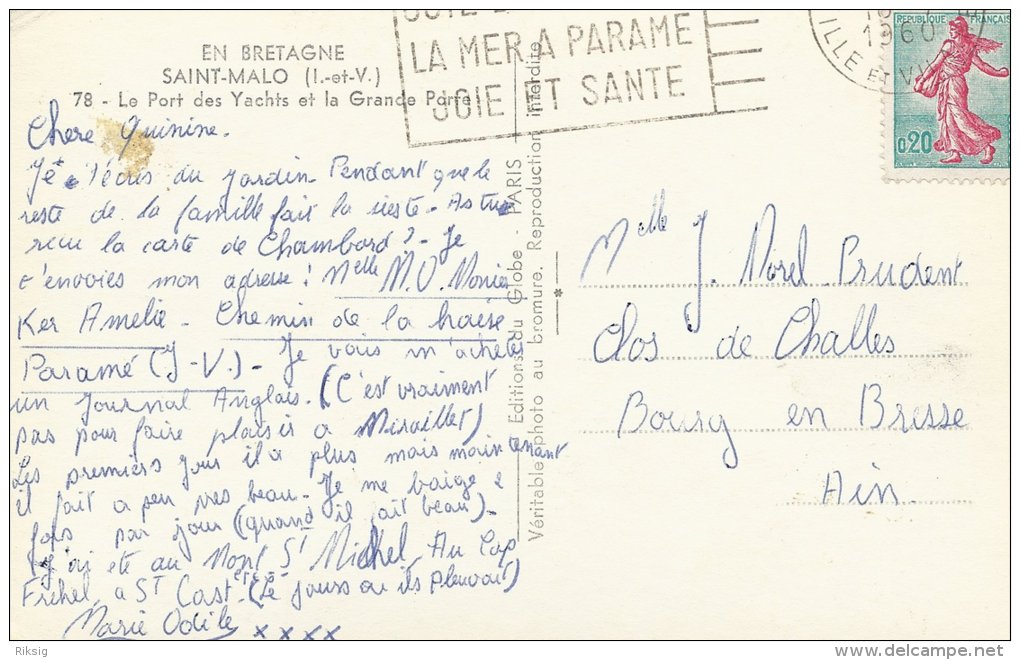 EN BRETAGNE
SAINT-MALO (I.-et-V.)
78 - Le Port des Yachts et la Grande Porte
LA MER A PARAME
JOIE ET SANTE
1960
ILLE ET V
REPUBLIQUE FRANÇAISE
0,20
Chere Quinine.
Je t'écris du jardin Pendant que le
reste de la famille fait la sieste - As tu
recu la carte de Chambord ? - Je
t'envoies mon adresse ! Melle M.O. Monier
Ker Amelie - Chemin de la haëre
Paramé (I-V.) - Je vais m'acheter
un journal Anglais. (C'est vraiment
pas pour faire plaisir a Miraillet)
Les premiers jour il a plus mais maintenant
il fait a peu pres beau. Je me baigne 2
fois par jour (quand il fait beau) -
J'ai ete au Mont St Michel. Au Cap
Frehel, a ST Cast (Le jours ou ils pleuvait)
Marie Odile xxxx
Editions du Globe - PARIS
Véritable photo au bromure. Reproduction interdite
Melle J. Morel Prudent
Clos de Challes
Bourg en Bresse
Ain.
Riksig
delcampe.net